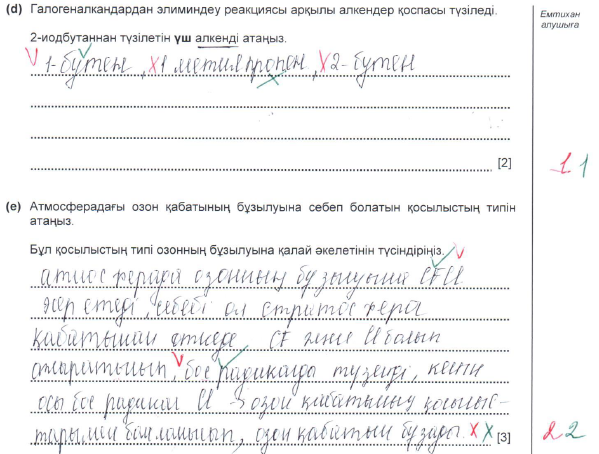 (d) Галогеналкандардан элиминдеу реакциясы арқылы алкендер қоспасы түзіледі.
Емтихан алушыға
2-иодбутаннан түзілетін үш алкенді атаңыз.
1-бутен, 1 метилпропен, 2-бутен
[2]
1 1
(e) Атмосферадағы озон қабатының бұзылуына себеп болатын қосылыстың типін
атаңыз.
Бұл қосылыстың типі озонның бұзылуына қалай әкелетінін түсіндіріңіз.
атмосферада озонның бузылуына
әсер етеді, себебі ол стратосфера
қабатынан өткенде CF және Cl болып
бос радикалды түзеді, кейін
осы бос радикал Cl озон қабатының қосылыс-
тарымен байланысып, озон қабатын бузады. [3]
2 2